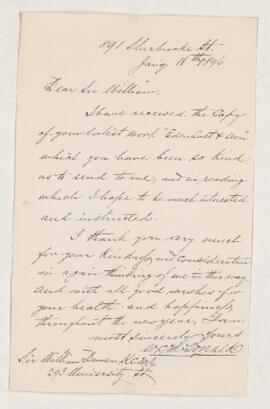 891 Sherbrooke St.
Jany 16th 1896
Dear Sir William.
I have received the Copy
of your latest work "Eden Lost & Won"
which you have been so kind
as to send to me, and in reading
which I hope to be much interested
and instructed.
I thank you very much
for your kindness and consideration
in again thinking of me in this way
and with all good wishes for
your health and happiness
throughout the new year, I am
most sincerely yours
W. C. McDonald
Sir William Dawson K.C.M.G
293 University St